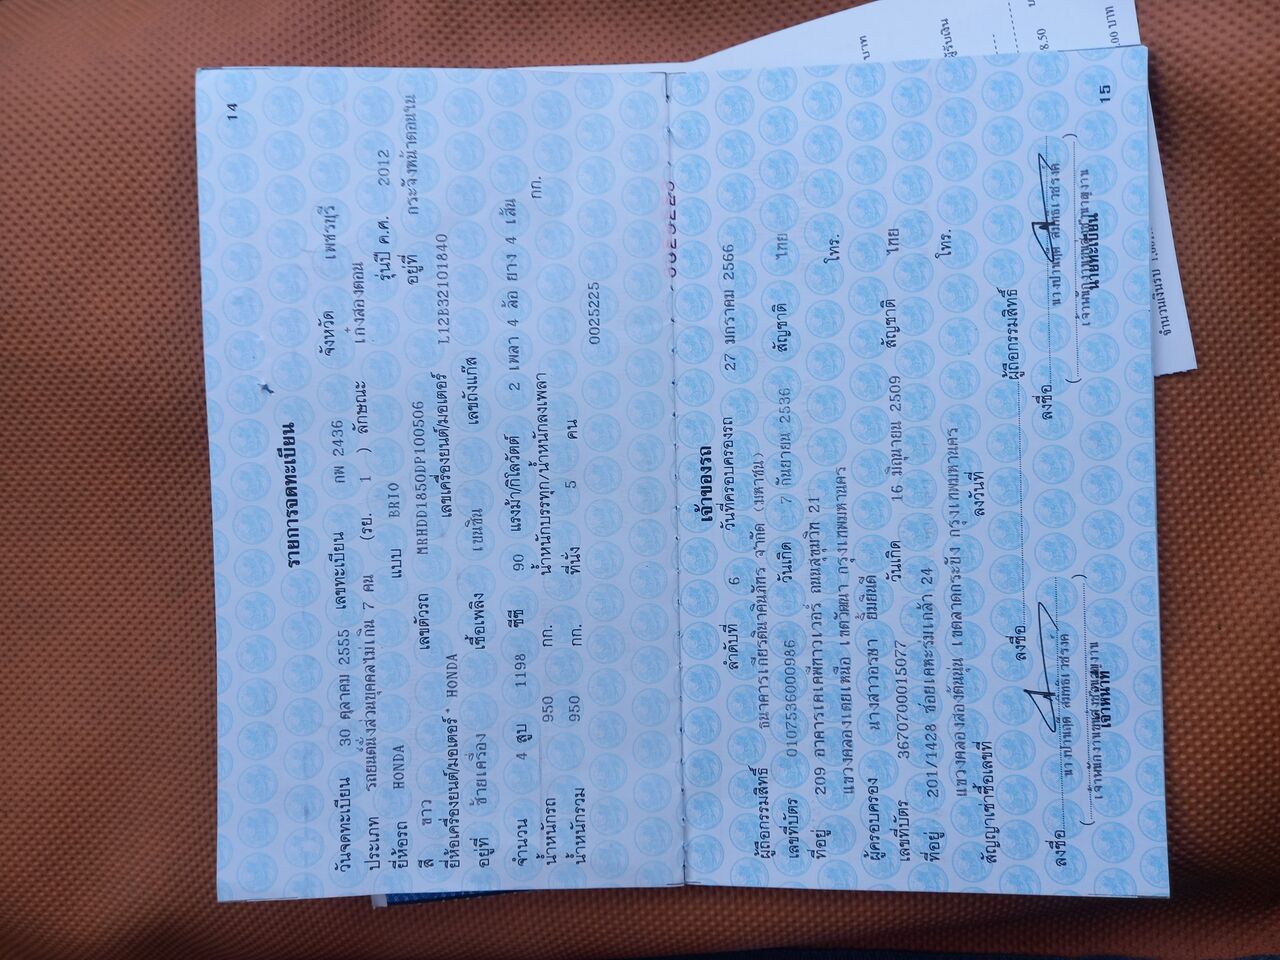 14
รายการจดทะเบียน
วันจดทะเบียน 30 ตุลาคม 2555 เลขทะเบียน กพ 2436 จังหวัด เพชรบุรี
ประเภท รถยนต์นั่งส่วนบุคคลไม่เกิน 7 คน (รย. 1 ) ลักษณะ เก๋งสองตอน
ยี่ห้อรถ HONDA แบบ BRIO รุ่นปี ค.ศ. 2012
สี ขาว เลขตัวรถ MRHDD1850DP100506 อยู่ที่ กระจังหน้าตอนใน
ยี่ห้อเครื่องยนต์/มอเตอร์ HONDA เลขเครื่องยนต์/มอเตอร์ L12B32101840
อยู่ที่ ซ้ายเครื่อง เชื้อเพลิง เบนซิน เลขถังแก๊ส
จำนวน 4 สูบ 1198 ซีซี 90 แรงม้า/กิโลวัตต์ 2 เพลา 4 ล้อ ยาง 4 เส้น
น้ำหนักรถ 950 กก. น้ำหนักบรรทุก/น้ำหนักลงเพลา กก.
น้ำหนักรวม 950 กก. ที่นั่ง 5 คน
0025225
เจ้าของรถ
ลำดับที่ 6 วันที่ครอบครองรถ 27 มกราคม 2566
ผู้ถือกรรมสิทธิ์ ธนาคารเกียรตินาคินภัทร จำกัด (มหาชน)
เลขที่บัตร 0107536000986 วันเกิด 7 กันยายน 2536 สัญชาติ ไทย
ที่อยู่ 209 อาคารเคเคพีทาวเวอร์ ถนนสุขุมวิท 21 โทร.
แขวงคลองเตยเหนือ เขตวัฒนา กรุงเทพมหานคร
ผู้ครอบครอง นางสาวอรษา ยิ้มยินดี
เลขที่บัตร 3670700015077 วันเกิด 16 มิถุนายน 2509 สัญชาติ ไทย
ที่อยู่ 201/1428 ซอยเคหะร่มเกล้า 24 โทร.
แขวงคลองสองต้นนุ่น เขตลาดกระบัง กรุงเทพมหานคร
สัญญาเช่าซื้อเลขที่ ลงวันที่
ลงชื่อ ผู้ถือกรรมสิทธิ์
ลงชื่อ ลงชื่อ
เจ้าหน้าที่ นายทะเบียน
15
บาท
ผู้รับเงิน
8.50
.00 บาท
จำนวนเงินรวม